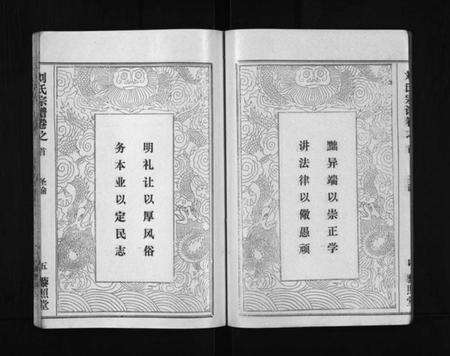 黜异端以崇正学
讲法律以儆愚顽
明礼让以厚风俗
务本业以定民志
刘氏宗谱卷之首 圣谕 五 藜照堂